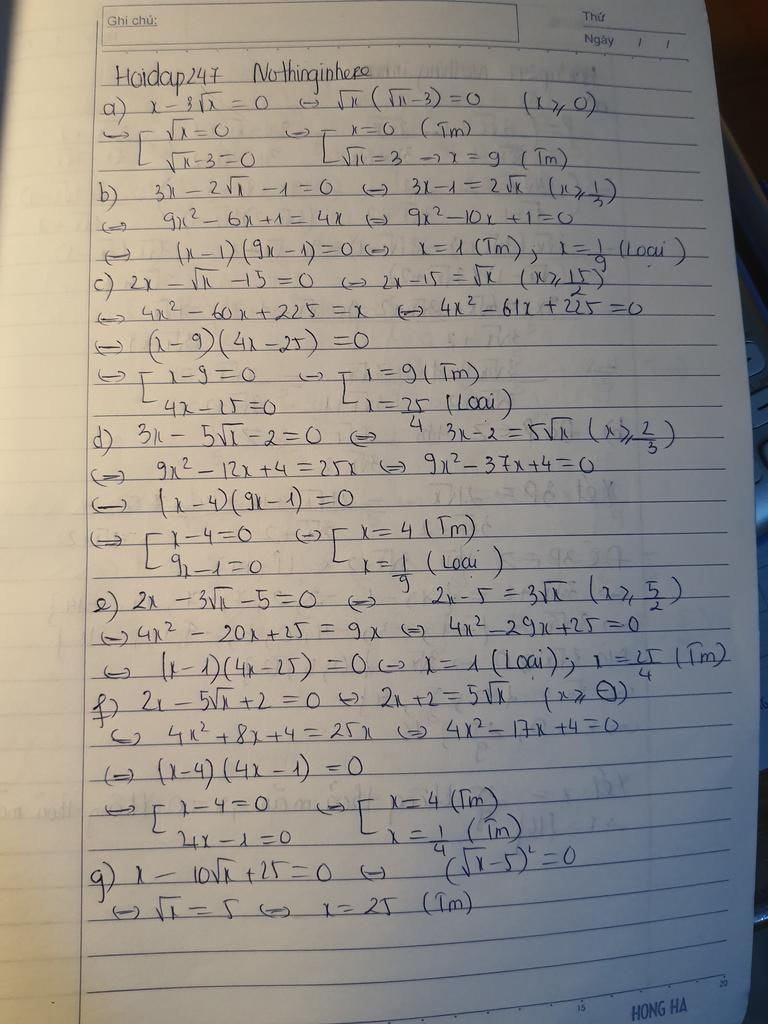 Ghi chú:
Thứ
Ngày / /
Hoidap247 Nothinginhere
a) x - 3√x = 0 ⇔ √x (√x - 3) = 0 (x ≥ 0)
⇔ [ √x = 0 ⇔ [ x = 0 (Tm)
√x - 3 = 0 √x = 3 → x = 9 (Tm)
b) 3x - 2√x - 1 = 0 ⇔ 3x - 1 = 2√x (x ≥ 1/3)
⇔ 9x² - 6x + 1 = 4x ⇔ 9x² - 10x + 1 = 0
⇔ (x - 1)(9x - 1) = 0 ⇔ x = 1 (Tm) ; x = 1/9 (Loại)
c) 2x - √x - 15 = 0 ⇔ 2x - 15 = √x (x ≥ 15/2)
⇔ 4x² - 60x + 225 = x ⇔ 4x² - 61x + 225 = 0
⇔ (x - 9)(4x - 25) = 0
⇔ [ x - 9 = 0 ⇔ [ x = 9 (Tm)
4x - 25 = 0 x = 25/4 (Loại)
d) 3x - 5√x - 2 = 0 ⇔ 3x - 2 = 5√x (x ≥ 2/3)
⇔ 9x² - 12x + 4 = 25x ⇔ 9x² - 37x + 4 = 0
⇔ (x - 4)(9x - 1) = 0
⇔ [ x - 4 = 0 ⇔ [ x = 4 (Tm)
9x - 1 = 0 x = 1/9 (Loại)
e) 2x - 3√x - 5 = 0 ⇔ 2x - 5 = 3√x (x ≥ 5/2)
⇔ 4x² - 20x + 25 = 9x ⇔ 4x² - 29x + 25 = 0
⇔ (x - 1)(4x - 25) = 0 ⇔ x = 1 (Loại) ; x = 25/4 (Tm)
f) 2x - 5√x + 2 = 0 ⇔ 2x + 2 = 5√x (x ≥ 0)
⇔ 4x² + 8x + 4 = 25x ⇔ 4x² - 17x + 4 = 0
⇔ (x - 4)(4x - 1) = 0
⇔ [ x - 4 = 0 ⇔ [ x = 4 (Tm)
4x - 1 = 0 x = 1/4 (Tm)
g) x - 10√x + 25 = 0 ⇔ (√x - 5)² = 0
⇔ √x = 5 ⇔ x = 25 (Tm)
15 20
HONG HA